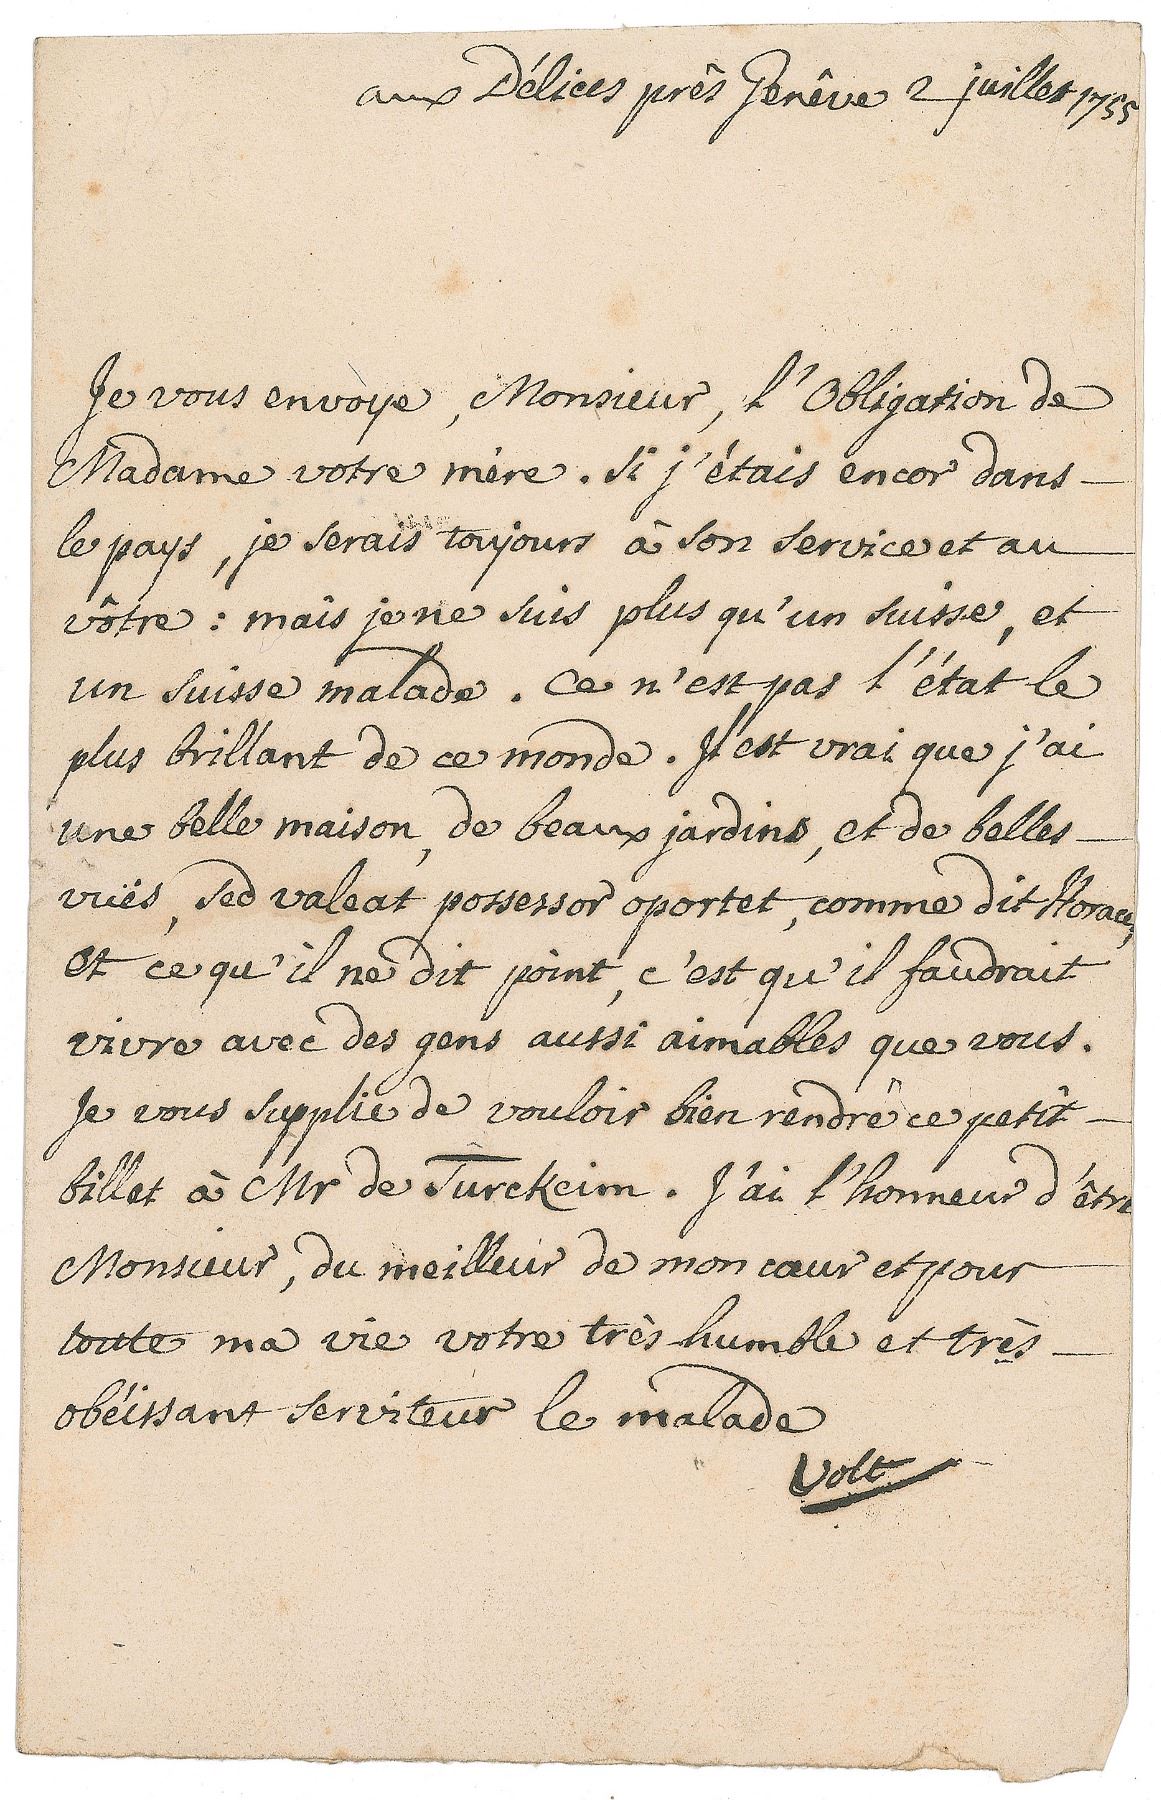 aux Délices près Genêve 2 juillet 1755
Je vous envoye, Monsieur, l'Obligation de
Madame votre mère. Si j'étais encor dans —
le pays, je serais toujours à son service et au
vôtre : mais je ne suis plus qu'un suisse, et
un suisse malade. Ce n'est pas l'état le
plus brillant de ce monde. Il est vrai que j'ai
une belle maison, de beaux jardins, et de belles —
vuës, sed valeat possessor oportet, comme dit Horace,
et ce qu'il ne dit point, c'est qu'il faudrait
vivre avec des gens aussi aimables que vous.
Je vous supplie de vouloir bien rendre ce petit —
billet à Mr de Turckeim. J'ai l'honneur d'être
Monsieur, du meilleur de mon cœur et pour
toute ma vie votre très humble et très —
obéissant serviteur le malade
Volt